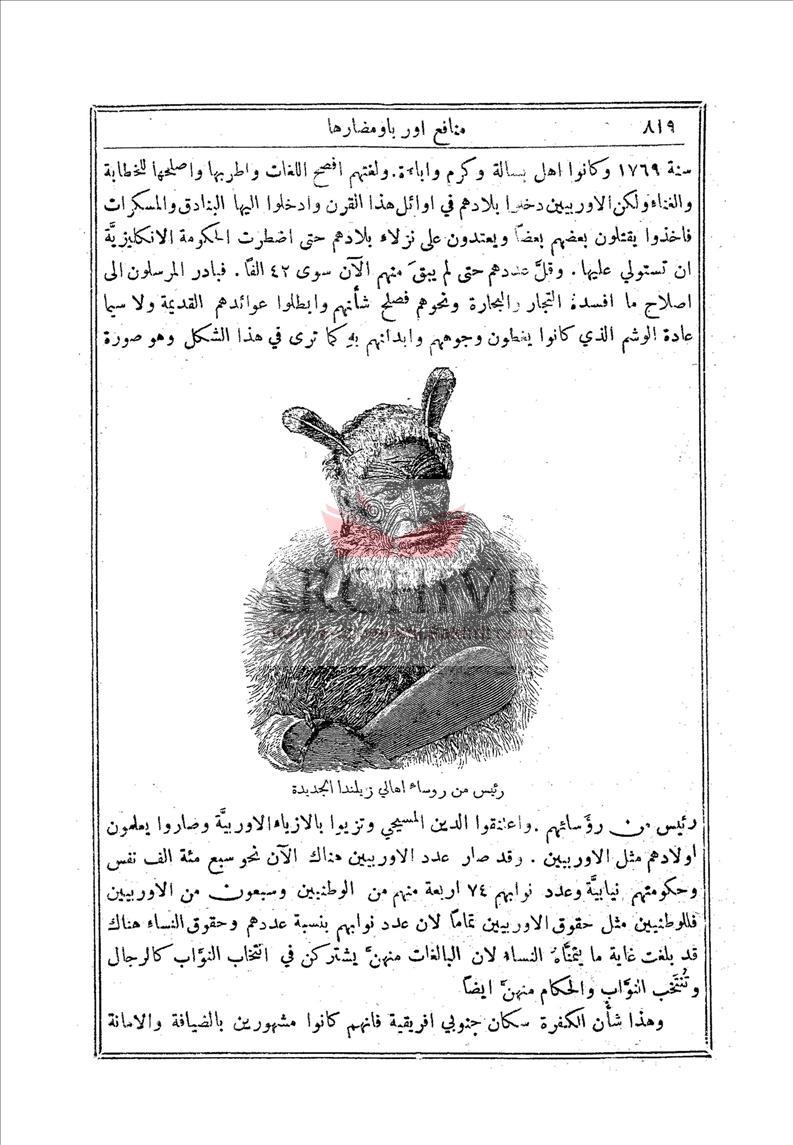 منافع اوربا ومضارها
٨١٩
سنة ١٧٦٩ وكانوا اهل بسالة وكرم واباءة. ولغتهم افصح اللغات واطربها واصلحها للخطابة
والغناء ولكن الاوربيين دخلوا بلادهم في اوائل هذا القرن وادخلوا اليها البنادق والمسكرات
فاخذوا يقتلون بعضهم بعضاً ويعتدون على نزلاء بلادهم حتى اضطرت الحكومة الانكليزيَّة
ان تستولي عليها. وقلَّ عددهم حتى لم يبقَ منهم الآن سوى ٤٢ الفاً. فبادر المرسلون الى
اصلاح ما افسدهُ التجار والبحارة ونحوهم فصلح شأنهم وابطلوا عوائدهم القديمة ولا سيما
عادة الوشم الذي كانوا يغطون وجوههم وابدانهم بهِ كما ترى في هذا الشكل وهو صورة
ARCHIVE
رئيس من روساء اهالي زيلندا الجديدة
رئيس من رؤسائهم. واعتنقوا الدين المسيحي وتزيوا بالازياء الاوربيَّة وصاروا يعلمون
اولادهم مثل الاوربيين. وقد صار عدد الاوربيين هناك الآن نحو سبع مئة الف نفس
وحكومتهم نيابيَّة وعدد نوابهم ٧٤ اربعة منهم من الوطنيين وسبعون من الاوربيين
فللوطنيين مثل حقوق الاوربيين تماماً لان عدد نوابهم بنسبة عددهم وحقوق النساء هناك
قد بلغت غاية ما يتمنَّاهُ النساء لان البالغات منهنَّ يشتركن في انتخاب النوَّاب كالرجال
وتُنتخَب النوَّاب والحكام منهنَّ ايضاً
وهذا شأن الكفرة سكان جنوبي افريقية فانهم كانوا مشهورين بالضيافة والامانة